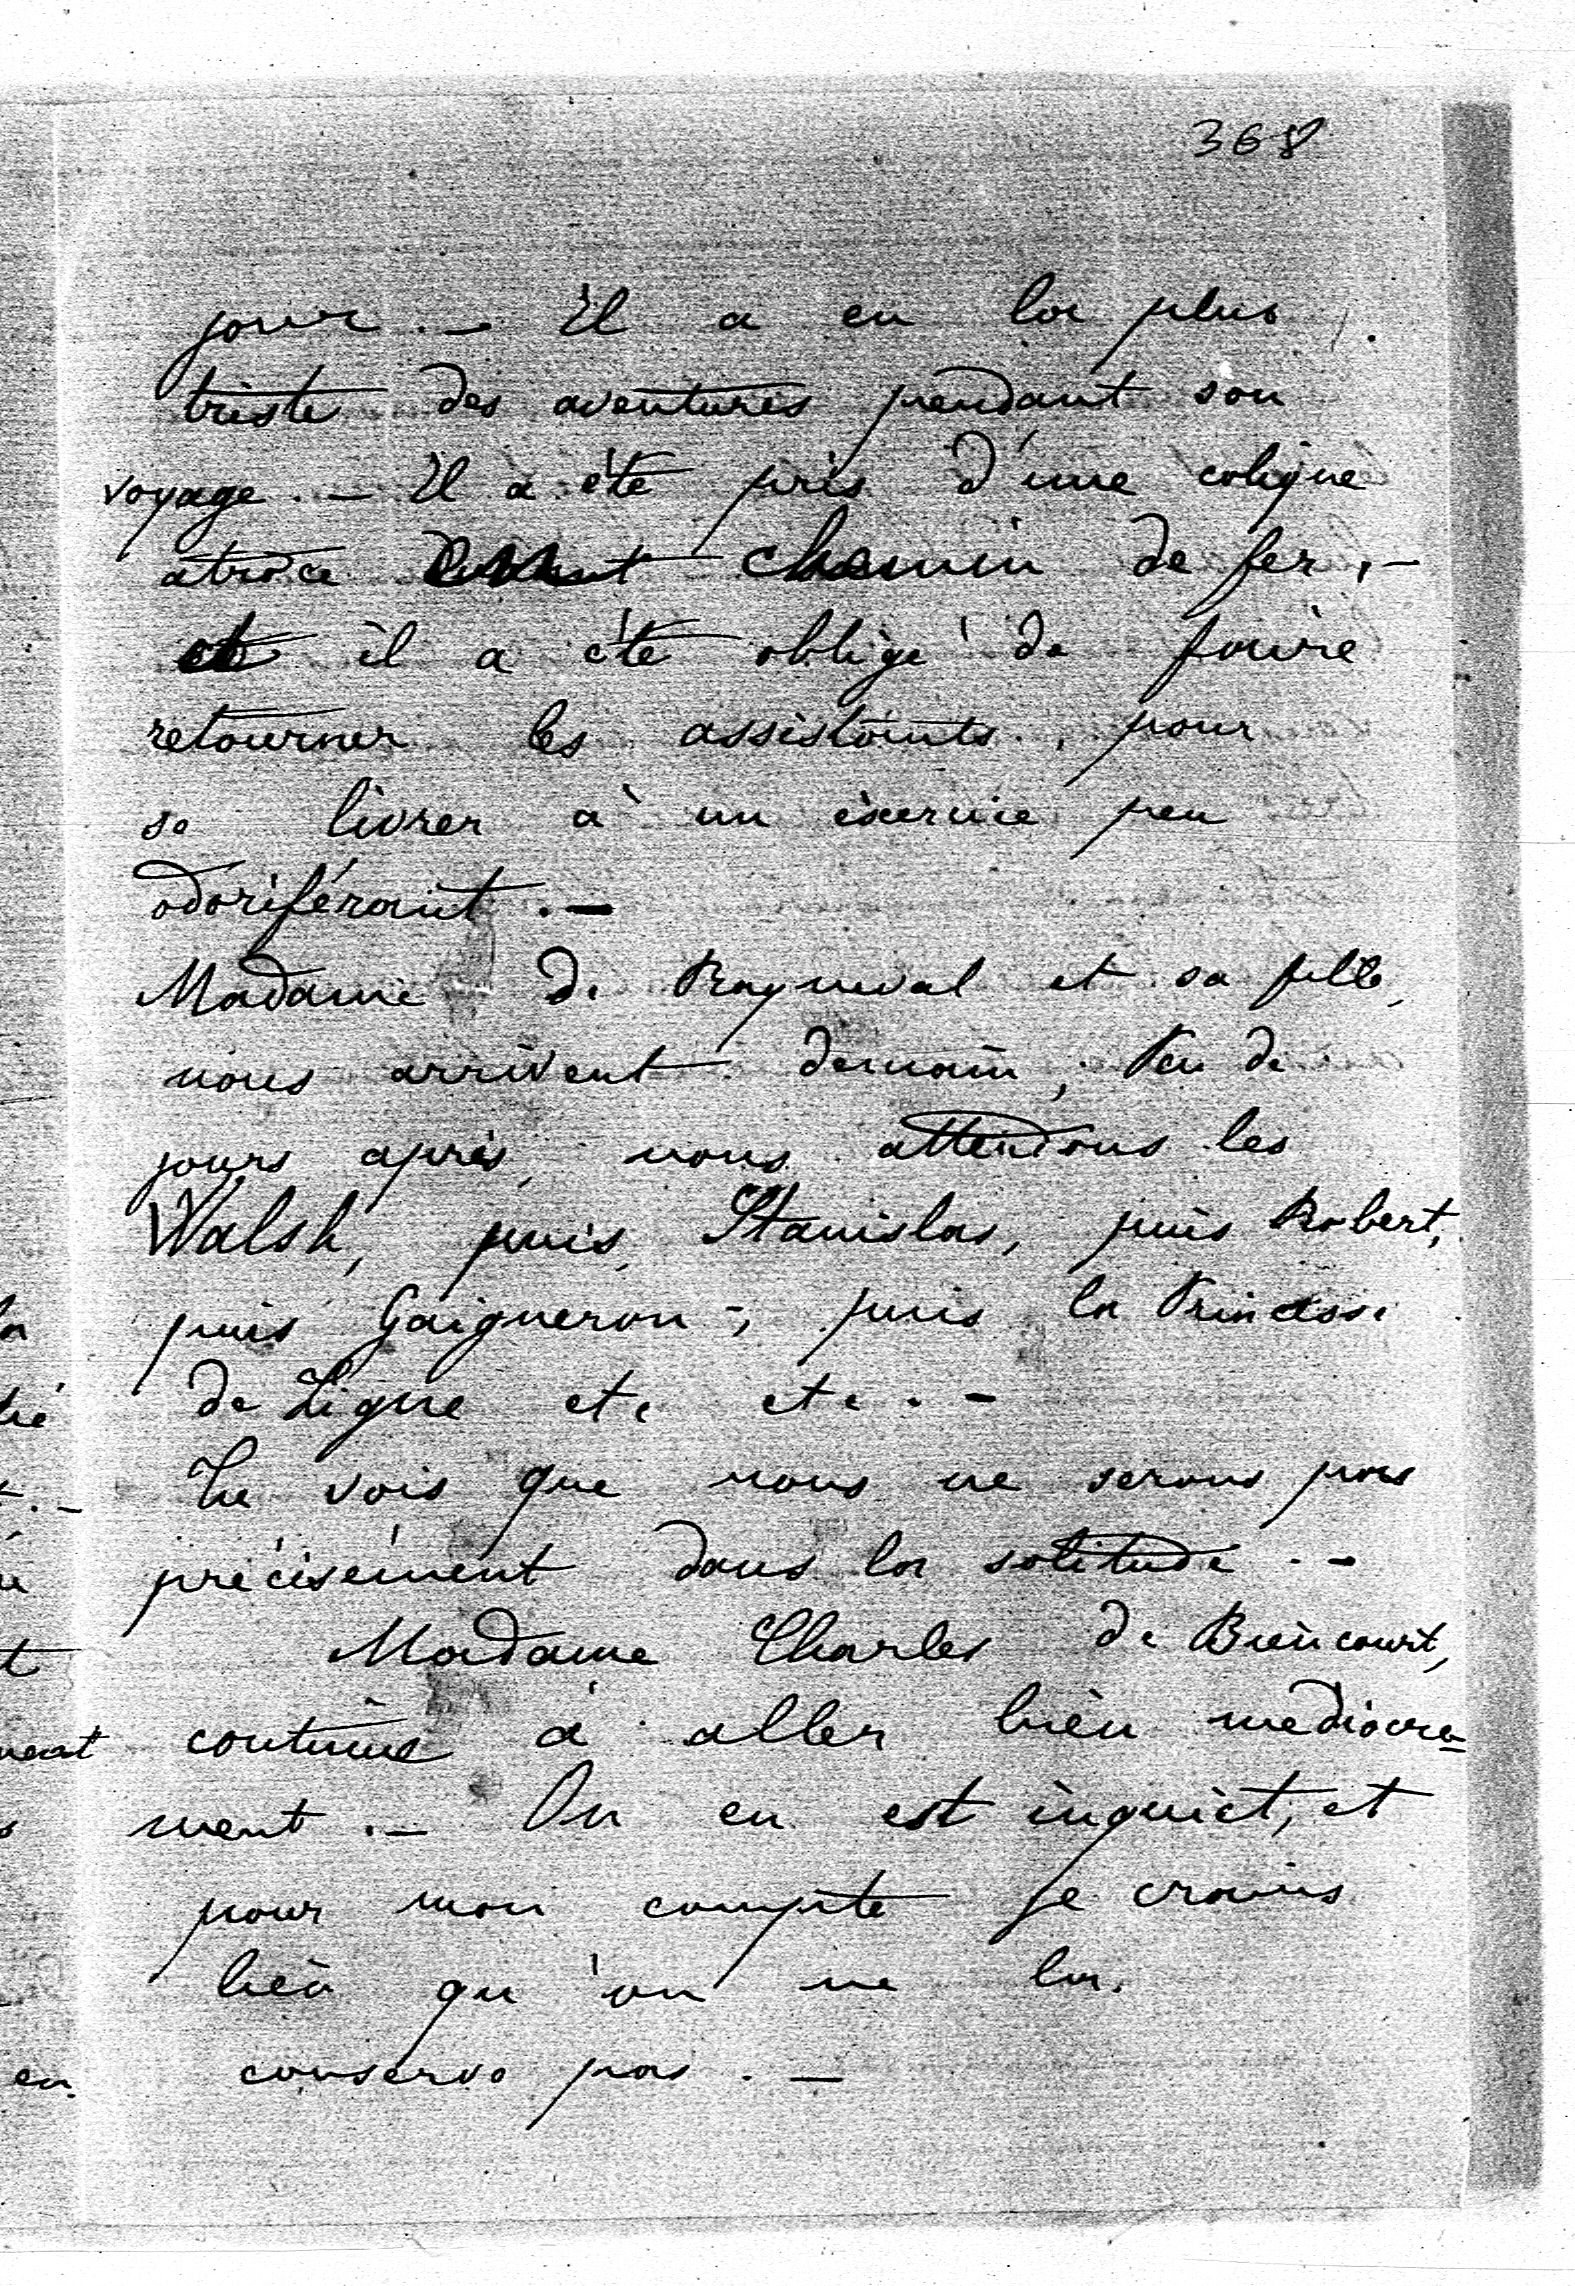 368
jour. — Il a eu la plus
triste des aventures pendant son
voyage. — Il a été pris d'une colique
atroce en chemin de fer, —
et il a été obligé de faire
retourner les assistants, pour
se livrer à un exercice peu
odoriférant. —
Madame de Rayneval et sa fille,
nous arrivent demain; Peu de
jours après, nous attendons les
Walsh, puis, Stanislas, puis Robert,
puis Gaigneron -, puis la Princesse
de Ligne etc etc. -
Tu vois que nous ne serons pas
précisément dans la solitude. -
Madame Charles de Biencourt,
continue à aller bien médiocre=
ment. — On en est inquiet, et
pour mon compte je crains
bien qu'on ne la
conserve pas. —